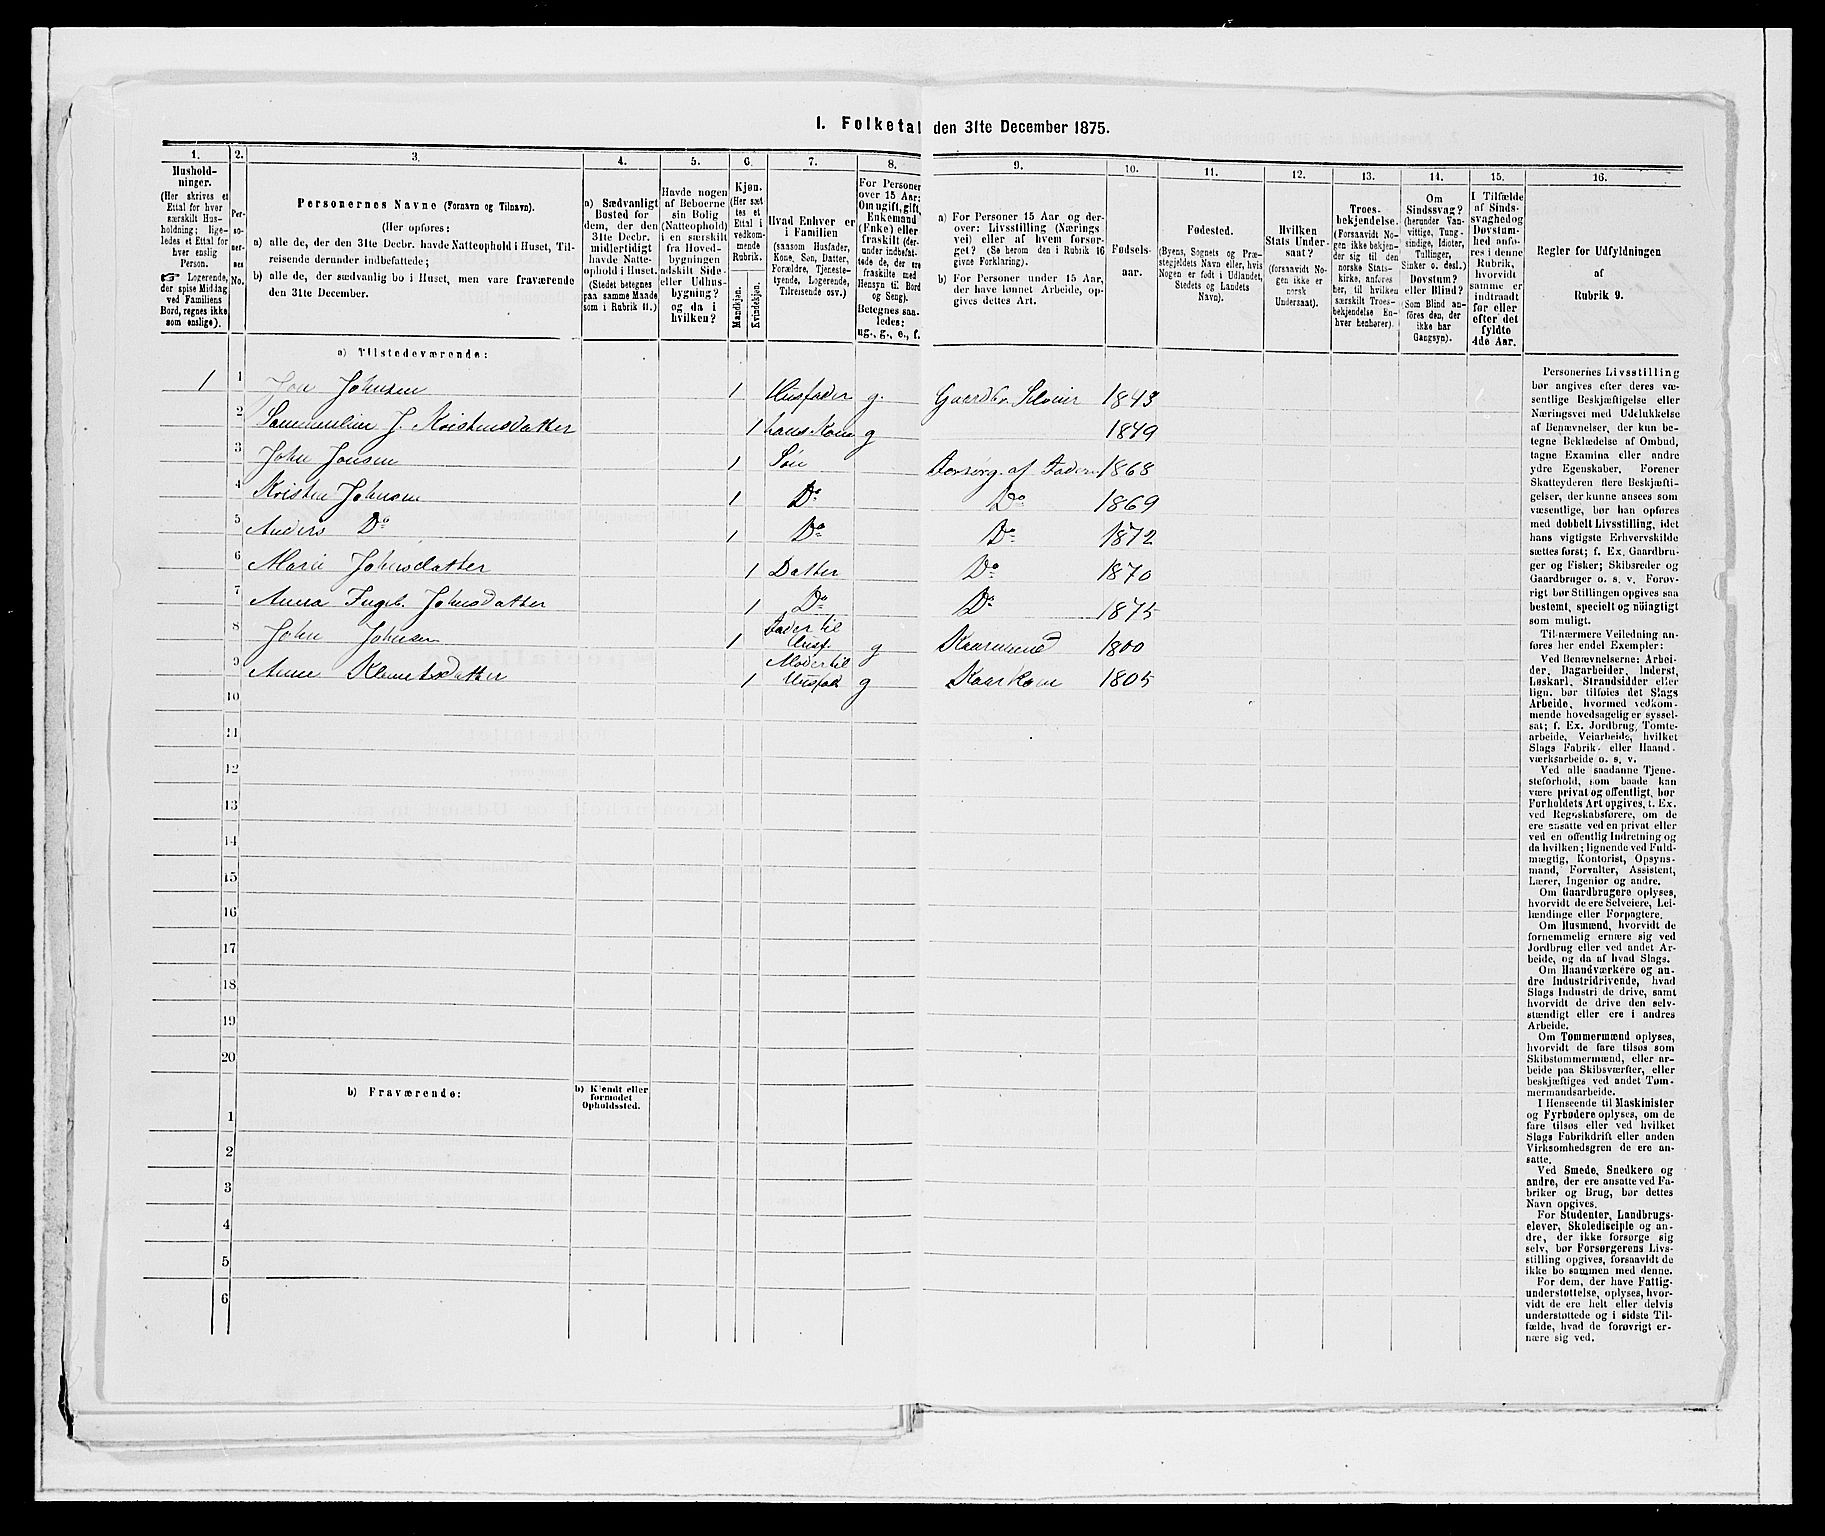 I. Folketal den 31te December 1875.
1.
Hushold-
ninger.
(Her skrives et
Ettal for hver
særskilt Hus-
holdning; lige-
ledes et Ettal for
hver enslig
Person.
☞ Logerende,
der spise Middag
ved Familiens
Bord, regnes ikke
som enslige).
2.
Per-
so-
ner-
nes
No.
3.
Personernes Navne (Fornavn og Tilnavn).
(Her opføres:
a) alle de, der den 31te Decbr. havde Natteophold i Huset, Til-
reisende derunder indbefattede;
b) alle de, der sædvanlig bo i Huset, men vare fraværende
den 31te December.
4.
a) Sædvanligt
Bosted for
dem, der den
31te Decbr.
midlertidigt
havde Natte-
ophold i Huset.
(Stedet betegnes
paa samme Maade
som i Rubrik 11.)
5.
Havde nogen
af Beboerne
sin Bolig
(Natteophold)
i en særskilt
fra Hoved-
bygningen
adskilt Side-
eller Udhus-
bygning?
og da i
hvilken?
6.
Kjøn.
(Her sæt-
tes et
Ettal i
vedkom-
mende
Rubrik.
Mandkjøn.
Kvindekjøn.
7.
Hvad Enhver er
i Familien
(saasom Husfader,
Kone, Søn, Datter,
Forældre, Tjeneste-
tyende, Logerende,
Tilreisende osv.)
8.
For Personer
over 15 Aar:
Om ugift, gift,
Enkemand
(Enke) eller
fraskilt (der-
under indbefat-
tede de, der ere
fraskilte med
Hensyn til Bord
og Seng).
Betegnes saa-
ledes:
ug., g., e., f.
9.
a) For Personer 15 Aar og der-
over: Livsstilling (Nærings-
vei) eller af hvem forsør-
get? (Se herom den i Rubrik 16
givne Forklaring).
b) For Personer under 15 Aar,
der have lønnet Arbeide, op-
gives dettes Art.
10.
Fødsels-
aar.
11.
Fødested.
(Byens, Sognets og Præ-
stegjeldets Navn eller, hvis
Nogen er født i Udlandet,
Stedets og Landets
Navn).
12.
Hvilken
Stats Under-
saat?
(forsaavidt No-
gen ikke er
norsk
Undersaat).
13.
Troes-
bekjendelse.
(Forsaavidt No-
gen ikke bekjen-
der sig til den
norske Stats-
kirke, anføres
her, til hvilken
særskilt Troes-
bekjendelse En-
hver henhører).
14.
Om
Sindssvag?
(herunder Van-
vittige, Tung-
sindige, Idioter,
Tullinger,
Sinker o. desl.)
Døvstum?
eller Blind?
(Som Blind an-
føres den, der
ikke har
Gangsyn).
15.
I Tilfælde
af Sinds-
svaghed og
Døvstum-
hed anfø-
res i denne
Rubrik,
hvorvidt
samme er
indtraadt
før eller
efter det
fyldte
4de Aar.
16.
Regler for Udfyldningen
af
Rubrik 9.
a) Tilstedeværende:
1 1 Jon Johnsen 1 Husfader g. Gaardbr. Selveier 1843
2 J. Kristensdatter 1 hans Kone g 1849
3 John Jonsen 1 Søn Forsørg. af Faderen 1868
4 Kristen Johnsen 1 Do Do 1869
5 Anders Do 1 Do Do 1872
6 Marie Johnsdatter 1 Datter Do 1870
7 Anna Ingb. Johnsdatter 1 Do Do 1875
8 John Johnsen 1 Fader til Husf. g Kaarmand 1800
9 Anne Klemetsdatter 1 Moder til Husfad g Kaarkone 1805
10
11
12
13
14
15
16
17
18
19
20
b) Fraværende:
b) Kjendt eller
formodet
Opholdssted.
1
2
3
4
5
6
Personernes Livsstilling
bør angives efter deres væ-
sentlige Beskjæftigelse eller
Næringsvei med Udelukkelse
af Benævnelser, der kun be-
tegne Beklædelse af Ombud,
tagne Examina eller andre
ydre Egenskaber. Forener
Skatteyderen flere Beskjæfti-
gelser, der kunne ansees som
væsentlige, bør han opføres
med dobbelt Livsstilling, idet
hans vigtigste Erhvervskilde
sættes først; f. Ex. Gaardbru-
ger og Fisker; Skibsreder og
Gaardbruger o. s. v. Forøv-
rigt bør Stillingen opgives saa
bestemt, specielt og nøiagtigt
som muligt.
Til nærmere Veiledning an-
føres her endel Exempler:
Ved Benævnelserne: Arbei-
der, Dagarbeider, Inderst,
Løskarl, Strandsidder eller
lign. bør tilføies det Slags
Arbeide, hvormed vedkom-
mende hovedsagelig er syssel-
sat; f. Ex. Jordbrug, Tomte-
arbeide, Veiarbeide, hvilket
Slags Fabrik- eller Haand-
værksarbeide o. s. v.
Ved alle saadanne Tjene-
steforhold, som baade kan
være privat og offentligt, bør
Forholdets Art opgives, t. Ex.
ved Regnskabsførere, om de
ere ansatte ved en privat eller
ved en offentlig Indretning og
da hvilken; lignende ved Fuld-
mægtig, Kontorist, Opsyns-
mand, Forvalter, Assistent,
Lærer, Ingeniør og andre.
Om Gaardbrugere oplyses,
hvorvidt de ere Selveiere, Lei-
lændinge eller Forpagtere.
Om Husmænd, hvorvidt de
fornemmelig ernære sig ved
Jordbrug eller ved andet Ar-
beide, og da af hvad Slags.
Om Haandværkere og an-
dre Industridrivende, hvad
Slags Industri de drive, samt
hvorvidt de drive den selv-
stændigt eller ere i andres
Arbeide.
Om Tømmermænd oplyses,
hvorvidt de fare tilsøs som
Skibstømmermænd, eller ar-
beide paa Skibsværfter, eller
beskjæftiges ved andet Tøm-
mermandsarbeide.
I Henseende til Maskinister
og Fyrbødere oplyses, om de
fare tilsøs eller ved hvilket
Slags Fabrikdrift eller anden
Virksomhedsgren de ere an-
satte.
Ved Smede, Snedkere og
andre, der ere ansatte ved Fa-
briker og Brug, bør dettes
Navn opgives.
For Studenter, Landbrugs-
elever, Skoledisciple og an-
dre, der ikke forsørge sig
selv, bør Forsørgerens Livs-
stilling opgives, forsaavidt de
ikke bo sammen med denne.
For dem, der have Fattig-
understøttelse, oplyses, hvor-
vidt de ere helt eller delvis
understøttede og i sidste Til-
fælde, hvad de forøvrigt er-
nære sig ved.